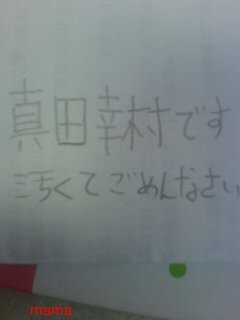 真田幸村です
汚くてごめんなさい
mama